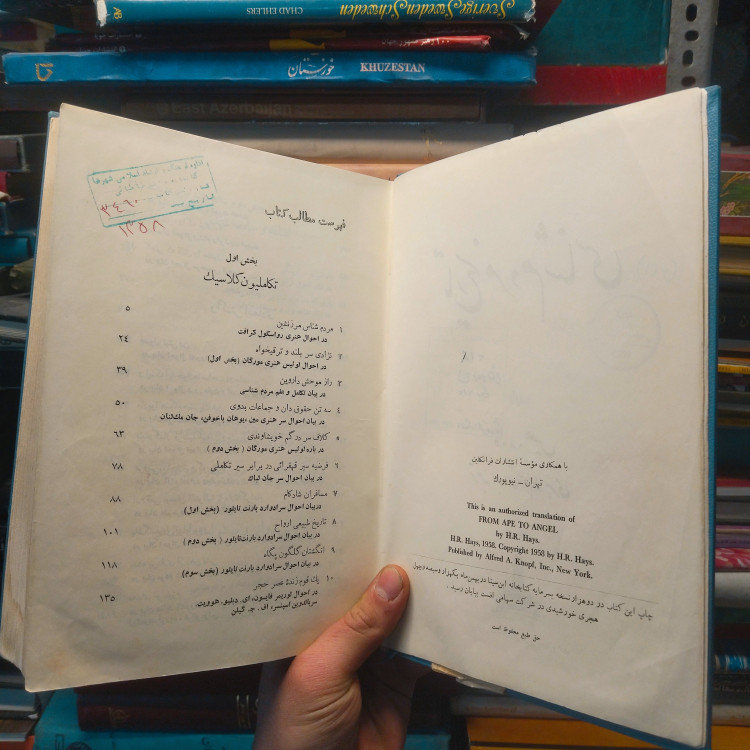 Sverige Sweden Schweden
CHAD EHLERS
AB
خوزستان KHUZESTAN
East Azerbaijan
۳۴۶۰
۱۳۵۸
فهرست مطالب کتاب
بخش اول
تکاملیون کلاسیك
۱ مردم شناس مرزنشین ۵
در احوال هنری رواسکول کرافت
۲ نژادی سر بلند و ترقیخواه ۲۴
در احوال لوئیس هنری مورگان (بخش اول)
۳ راز موحش داروین ۳۹
در بیان تکامل و علم مردم شناسی
۴ سه تن حقوق دان و جماعات بدوی ۵۰
در بیان احوال سر هنری مین، یوهان باخوفن، جان مك‌لنان
۵ کلاف سر در گم خویشاوندی ۶۳
در باره لوئیس هنری مورگان (بخش دوم)
۶ فرضیه سیر قهقرائی در برابر سیر تکاملی ۷۸
در بیان احوال سر جان لباك
۷ مسافران شادکام ۸۸
دربیان احوال سرادوارد بارنت تایلور (بخش اول)
۸ تاریخ طبیعی ارواح ۱۰۱
در بیان احوال سرادوارد بارنت‌تایلور (بخش دوم)
۹ انگشتان گلگون پگاه ۱۱۸
در بیان احوال سرادوارد بارنت تایلور (بخش سوم)
۱۰ یك قوم زندهٔ عصر حجر ۱۳۵
در احوال لوریمر فایسون، ای. دبلیو. هوویت،
سربالدوین اسپنسر، اف. ج. گیلن
با همکاری مؤسسهٔ انتشارات فرانکلین
تهران - نیویورك
This is an authorized translation of
FROM APE TO ANGEL
by H.R. Hays.
H.R. Hays, 1958. Copyright 1958 by H.R. Hays.
Published by Alfred A. Knopf, Inc., New York.
چاپ این کتاب در دوهزار نسخه به سرمایه کتابخانه ابن‌سینا در بهمن ماه یکهزار و سیصد و چهل
هجری خورشیدی در شرکت سهامی افست بپایان رسید.
حق طبع محفوظ است